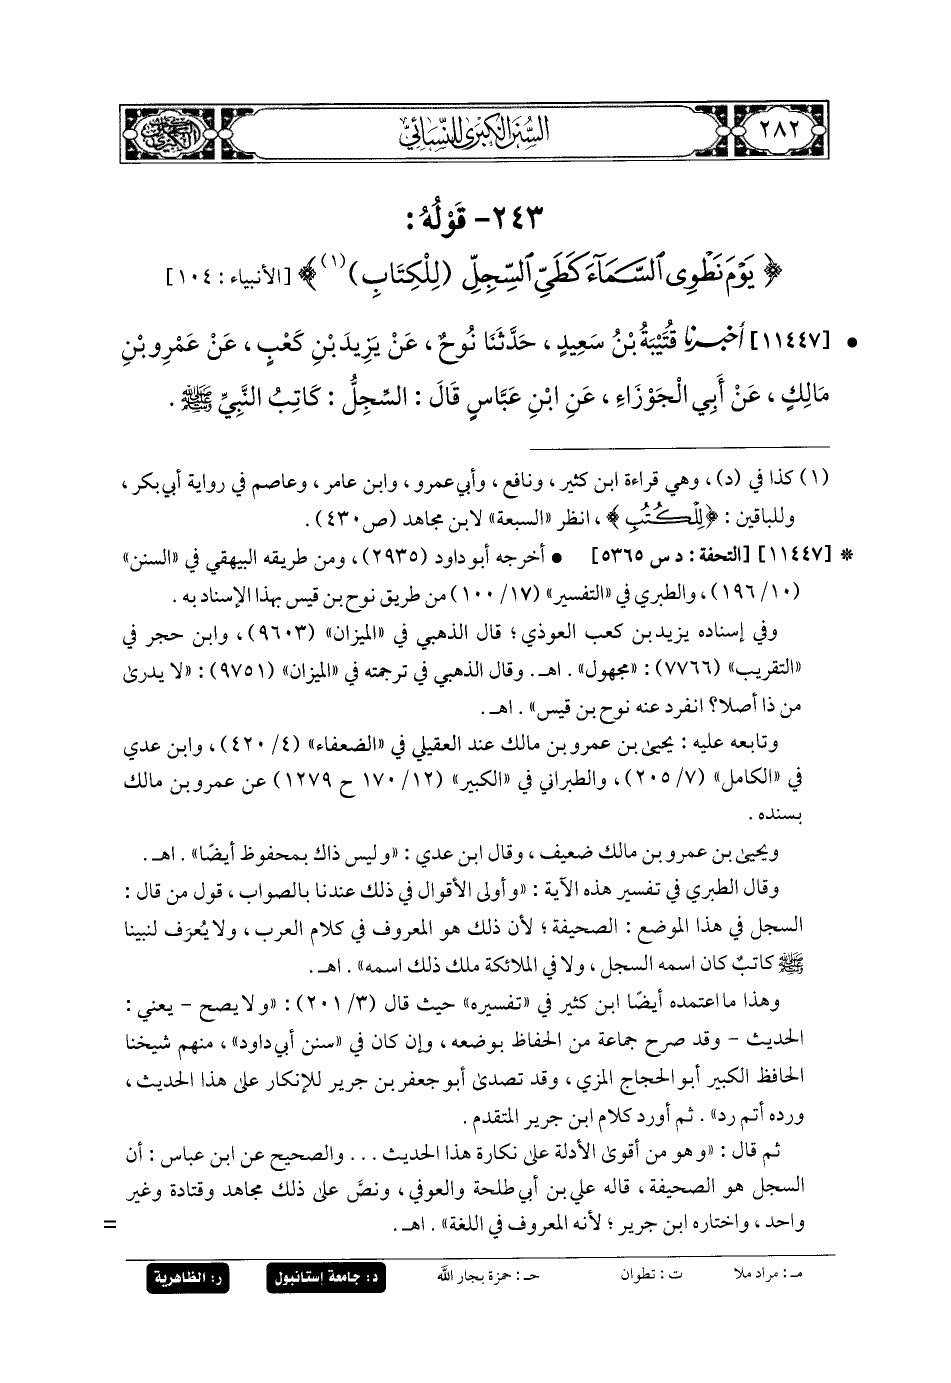 ٢٨٢
السنن الكبرى للنسائي
٢٤٣- قَوْلُهُ :
﴿ يَوْمَ نَطْوِى ٱلسَّمَآءَ كَطَىِّ ٱلسِّجِلِّ (لِلْكِتَابِ)(١) ﴾ [الأنبياء : ١٠٤]
• [١١٤٤٧] أخبرنا قُتَيْبَةُ بْنُ سَعِيدٍ ، حَدَّثَنَا نُوحٌ ، عَنْ يَزِيدَ بْنِ كَعْبٍ ، عَنْ عَمْرِو بْنِ
مَالِكٍ ، عَنْ أَبِي الْجَوْزَاءِ ، عَنِ ابْنِ عَبَّاسٍ قَالَ : السِّجِلُّ : كَاتِبُ النَّبِيِّ ﷺ .
(١) كذا في (د) ، وهي قراءة ابن كثير ، ونافع ، وأبي عمرو ، وابن عامر ، وعاصم في رواية أبي بكر ،
وللباقين : ﴿لِلْكُتُبِ﴾ ، انظر «السبعة» لابن مجاهد (ص٤٣٠) .
* [١١٤٤٧] [التحفة : د س ٥٣٦٥] • أخرجه أبو داود (٢٩٣٥) ، ومن طريقه البيهقي في «السنن»
(١٠/ ١٩٦) ، والطبري في «التفسير» (١٧/ ١٠٠) من طريق نوح بن قيس بهذا الإسناد به .
وفي إسناده يزيد بن كعب العوذي ؛ قال الذهبي في «الميزان» (٩٦٠٣) ، وابن حجر في
«التقريب» (٧٧٦٦) : «مجهول» . اهـ . وقال الذهبي في ترجمته في «الميزان» (٩٧٥١) : «لا يدرىٰ
من ذا أصلا؟ انفرد عنه نوح بن قيس» . اهـ .
وتابعه عليه : يحيىٰ بن عمرو بن مالك عند العقيلي في «الضعفاء» (٤/ ٤٢٠) ، وابن عدي
في «الكامل» (٧/ ٢٠٥) ، والطبراني في «الكبير» (١٢/ ١٧٠ ح ١٢٧٩) عن عمرو بن مالك
بسنده .
ويحيىٰ بن عمرو بن مالك ضعيف ، وقال ابن عدي : «وليس ذاك بمحفوظ أيضًا» . اهـ .
وقال الطبري في تفسير هذه الآية : «وأولى الأقوال في ذلك عندنا بالصواب ، قول من قال :
السجل في هذا الموضع : الصحيفة ؛ لأن ذلك هو المعروف في كلام العرب ، ولا يُعرَف لنبينا
ﷺ كاتبٌ كان اسمه السجل ، ولا في الملائكة ملك ذلك اسمه» . اهـ .
وهذا ما اعتمده أيضًا ابن كثير في «تفسيره» حيث قال (٣/ ٢٠١) : «ولا يصح - يعني :
الحديث - وقد صرح جماعة من الحفاظ بوضعه ، وإن كان في «سنن أبي داود» ، منهم شيخنا
الحافظ الكبير أبو الحجاج المزي ، وقد تصدىٰ أبو جعفر بن جرير للإنكار علىٰ هذا الحديث ،
ورده أتم رد» . ثم أورد كلام ابن جرير المتقدم .
ثم قال : «وهو من أقوىٰ الأدلة علىٰ نكارة هذا الحديث ... والصحيح عن ابن عباس : أن
السجل هو الصحيفة ، قاله علي بن أبي طلحة والعوفي ، ونصَّ علىٰ ذلك مجاهد وقتادة وغير
واحد ، واختاره ابن جرير ؛ لأنه المعروف في اللغة» . اهـ . =
مـ : مراد ملا ت : تطوان حـ : حمزة بجار الله د : جامعة إستانبول ر : الظاهرية